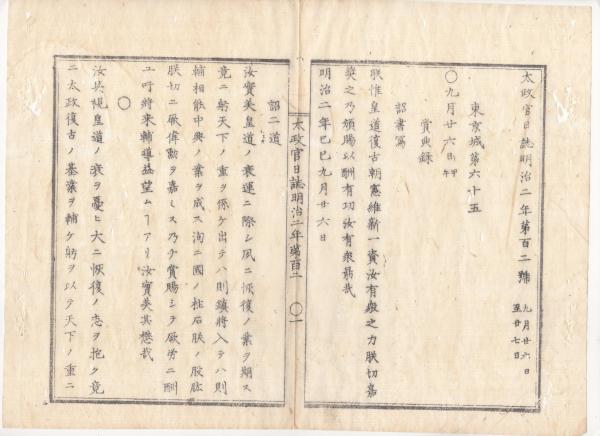 太政官日誌明治二年第百二號
九月廿六日
至廿七日
東京城第六十五
〇九月廿六日甲午
賞典錄
詔書寫
朕惟皇道復古朝憲維新一資汝有衆之力朕切嘉
奬之乃頒賜以酬有功汝有衆勗哉
明治二年己巳九月廿六日
太政官日誌明治二年第百二
〇一
詔二道
汝實美皇道ノ衰運ニ際シ夙ニ恢復ノ業ヲ期ス
竟ニ躬天下ノ重ヲ係ケ出テハ則鎭將入テハ則
輔相能中興ノ業ヲ成ス洵ニ國ノ柱石朕ノ股肱
朕切ニ厥偉勳ヲ嘉ミス乃チ賞賜シテ厥勞ニ酬
ユ吁將来輔導益望ムアリ汝實美其懋哉
〇
汝具視皇道ノ衰ヲ憂ヒ大ニ恢復ノ志ヲ抱ク竟
ニ太政復古ノ基業ヲ輔ケ躬ヲ以テ天下ノ重ニ